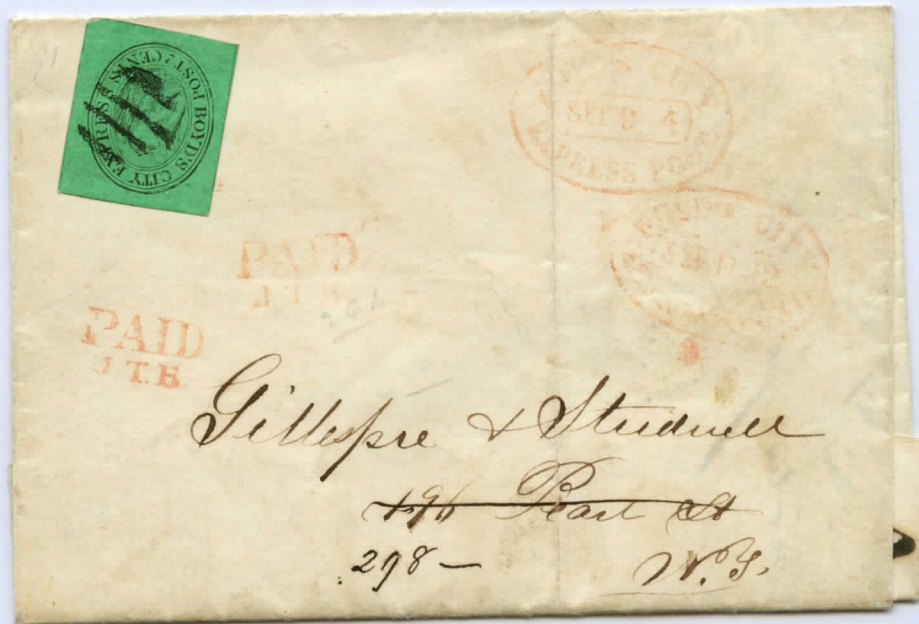 BOYD'S CITY EXPRESS POST 2 CENTS
CITY
SEP 9 4
EXPRESS POST.
CITY
PAID
J.T.B
PAID
J.T.B.
Gillespie & Studwell
196 Pearl St
298 —
N.Y.